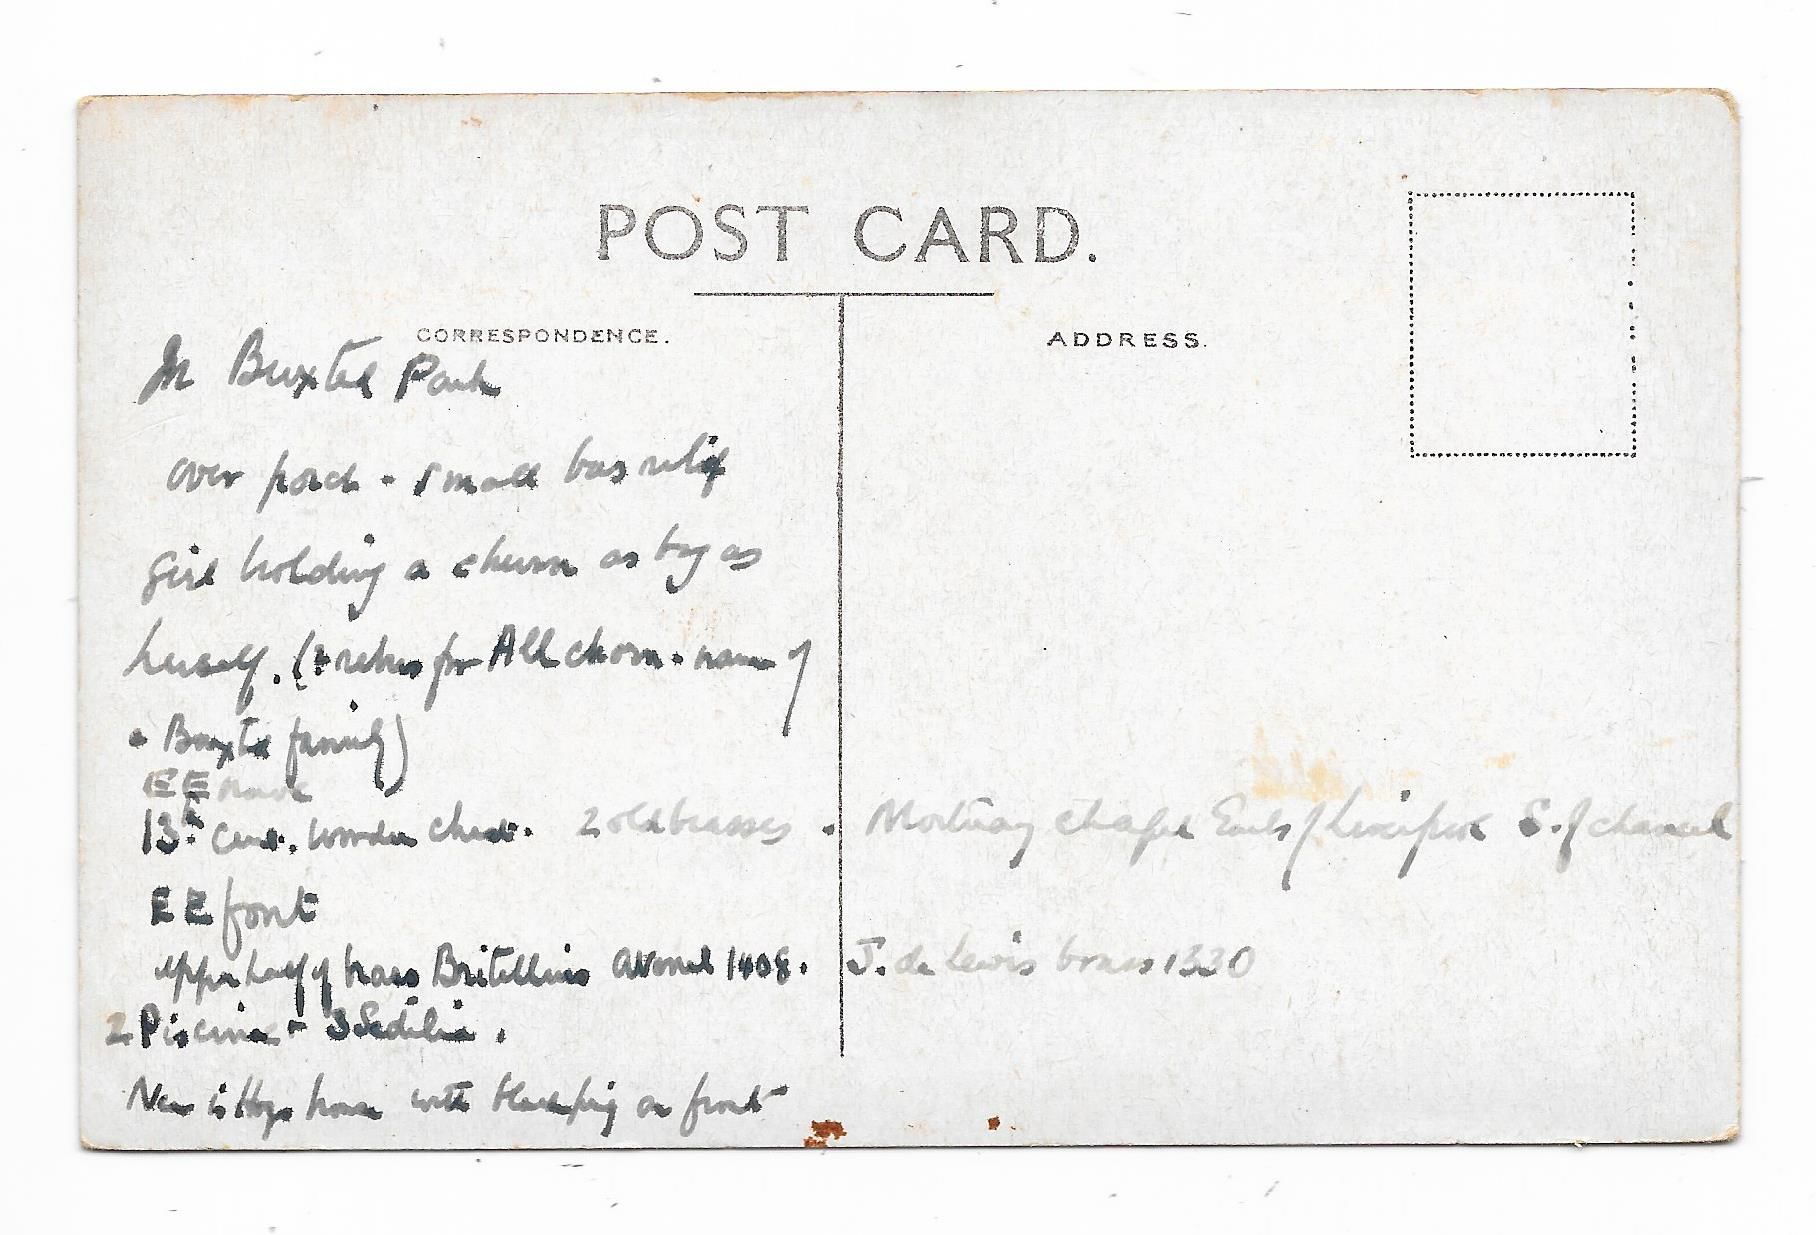 POST CARD.
CORRESPONDENCE.
ADDRESS.
In Buxted Park
over porch - small bas relief
girl holding a churn as big as
herself. (a rebus for Allchorn - name of
a Buxted family)
EE nave
13th cent. wooden chest. 2 old brasses. Mortuary chapel Earls of Liverpool S. of chancel
EE font
upper half of brass Britellius Avenel 1408. J. de Lewis brass 1330
2 Piscina + 3 Sedilia.
Near is Hogs house with pig on front